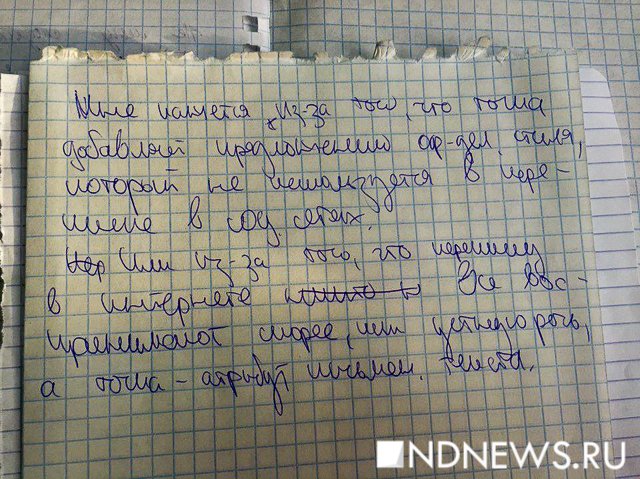 Мне кажется, из-за того, что точка
добавляет предложению оф-дел. стиля,
который не используется в пере-
писке в соц. сетях.
Или из-за того, что переписку
в интернете все вос-
принимают скорее, как устную речь,
а точка - атрибут письмен. текста.
NDNEWS.RU